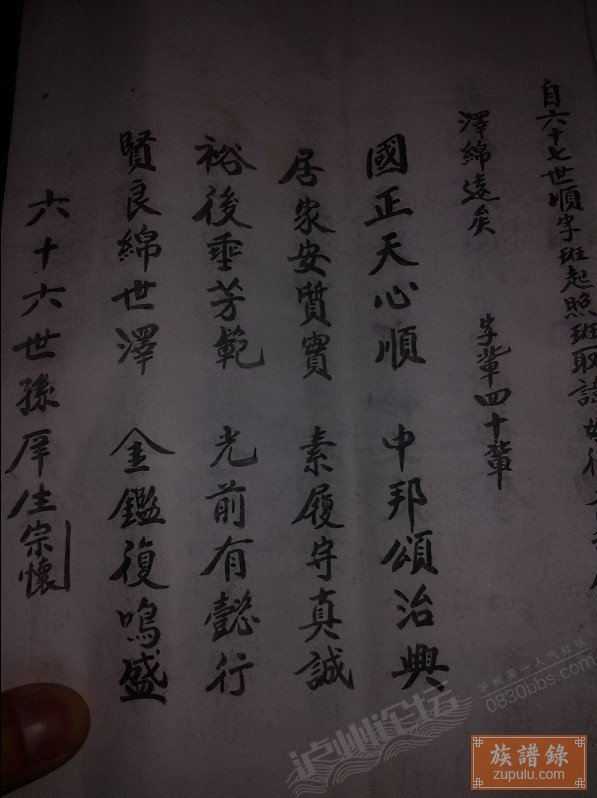 自六十七世順字班起照班取
澤綿遠矣 字輩四十輩
國正天心順 中邦頌治興
居家安質實 素履守真誠
裕後垂芳範 光前有懿行
賢良綿世澤 金鑑復鳴盛
六十六世孫厚生宗懷
泸州论坛
泸州第一人气社区
0830bbs.com
族譜錄
zupulu.com